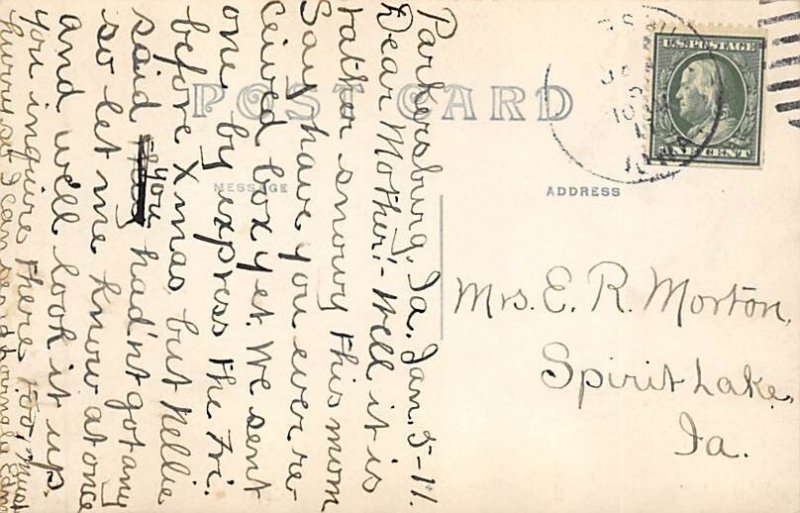 POST CARD
MESSAGE
ADDRESS
U.S. POSTAGE
ONE CENT
Parkersburg, Ia. Jan. 5-11.
Dear Mother:- Well it is
rather snowy this morn
Say have you ever re-
ceived box yet. We sent
one by express the Fri.
before Xmas, but Nellie
said you had'nt got any
so let me know at once
and we'll look it up.
You inquire there too, Must
hurry so I can send
Mrs. E. R. Morton,
Spirit Lake,
Ia.